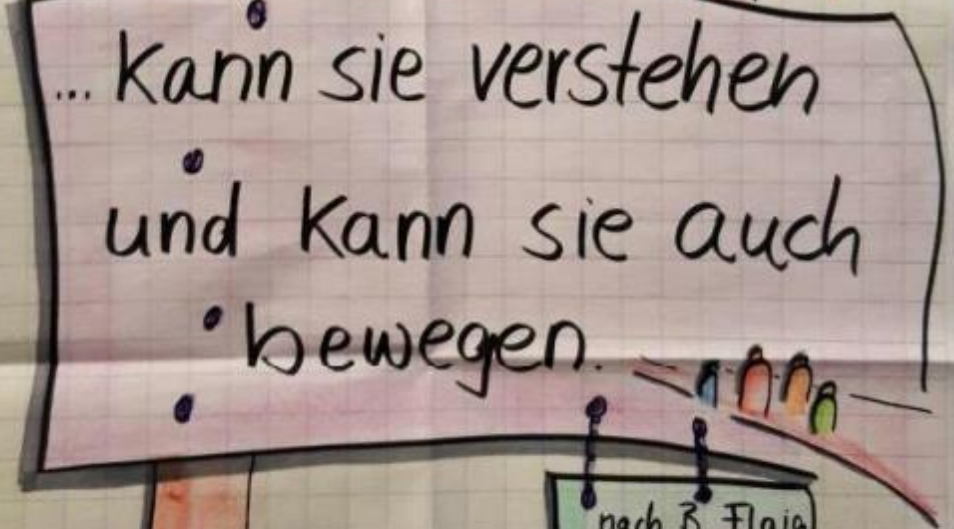 ... kann sie verstehen
und kann sie auch
bewegen.
nach B. Flaig